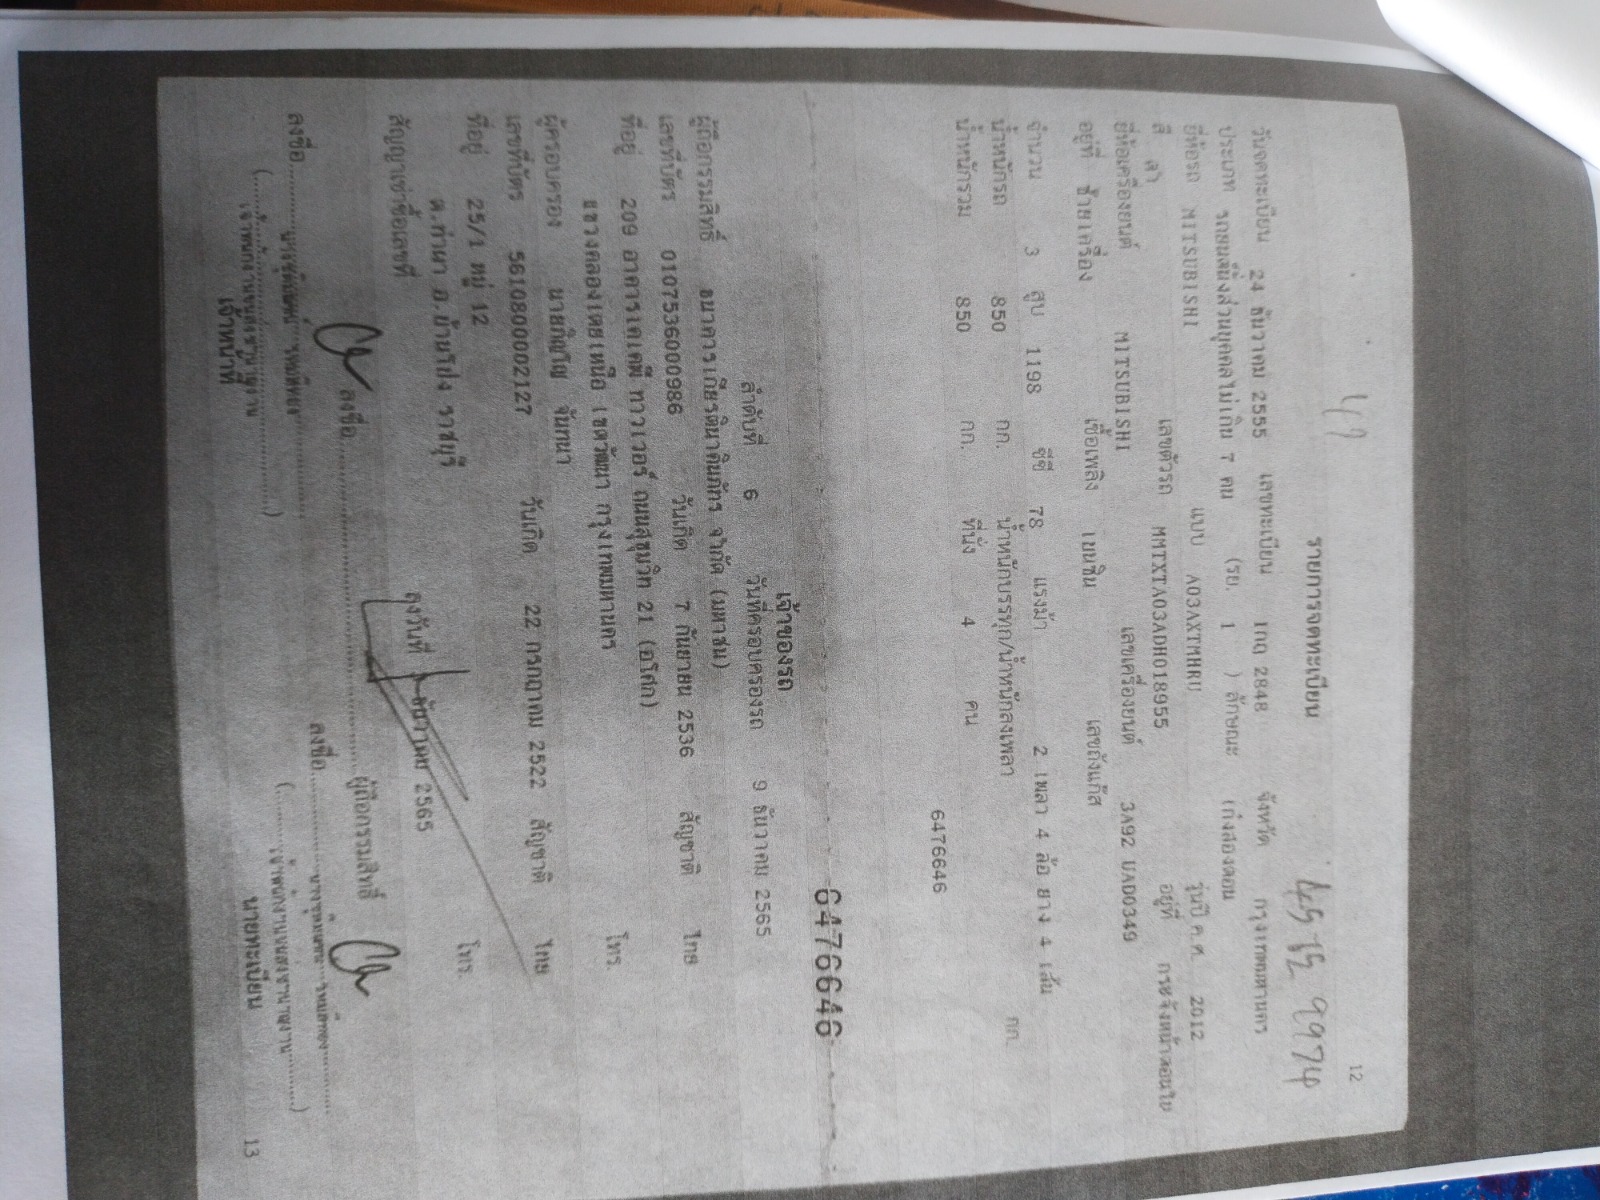 12
รายการจดทะเบียน
วันจดทะเบียน 24 ธันวาคม 2555 เลขทะเบียน 1กญ 2848 จังหวัด กรุงเทพมหานคร
ประเภท รถยนต์นั่งส่วนบุคคลไม่เกิน 7 คน (รย. 1 ) ลักษณะ เก๋งสองตอน
ยี่ห้อรถ MITSUBISHI แบบ A03AXTMHRU รุ่นปี ค.ศ. 2012
สี ดำ เลขตัวรถ MMTXTA03ADH018955 อยู่ที่
ยี่ห้อเครื่องยนต์ MITSUBISHI เลขเครื่องยนต์ 3A92 UAD0349
อยู่ที่ ซ้ายเครื่อง เชื้อเพลิง เบนซิน เลขถังแก๊ส
จำนวน 3 สูบ 1198 ซีซี 78 แรงม้า 2 เพลา 4 ล้อ ยาง 4 เส้น
น้ำหนักรถ 850 กก. น้ำหนักบรรทุก/น้ำหนักลงเพลา กก.
น้ำหนักรวม 850 กก. ที่นั่ง 4 คน
6476646
6476646
เจ้าของรถ
ลำดับที่ 6 วันที่ครอบครองรถ 9 ธันวาคม 2565
ผู้ถือกรรมสิทธิ์ ธนาคารเกียรตินาคินภัทร จำกัด (มหาชน)
เลขที่บัตร 0107536000986 วันเกิด 7 กันยายน 2536 สัญชาติ ไทย
ที่อยู่ 209 อาคารเคเคพี ทาวเวอร์ ถนนสุขุมวิท 21 (อโศก)
แขวงคลองเตยเหนือ เขตวัฒนา กรุงเทพมหานคร โทร.
ผู้ครอบครอง นายภิญโญ จันทมา
เลขที่บัตร 5610800002127 วันเกิด 22 กรกฎาคม 2522 สัญชาติ ไทย
ที่อยู่ 25/1 หมู่ 12 โทร.
ต.ท่าผา อ.บ้านโป่ง ราชบุรี
สัญญาเช่าซื้อเลขที่ ลงวันที่ ธันวาคม 2565
ลงชื่อ ผู้ถือกรรมสิทธิ์
ลงชื่อ ลงชื่อ
เจ้าหน้าที่ นายทะเบียน
13